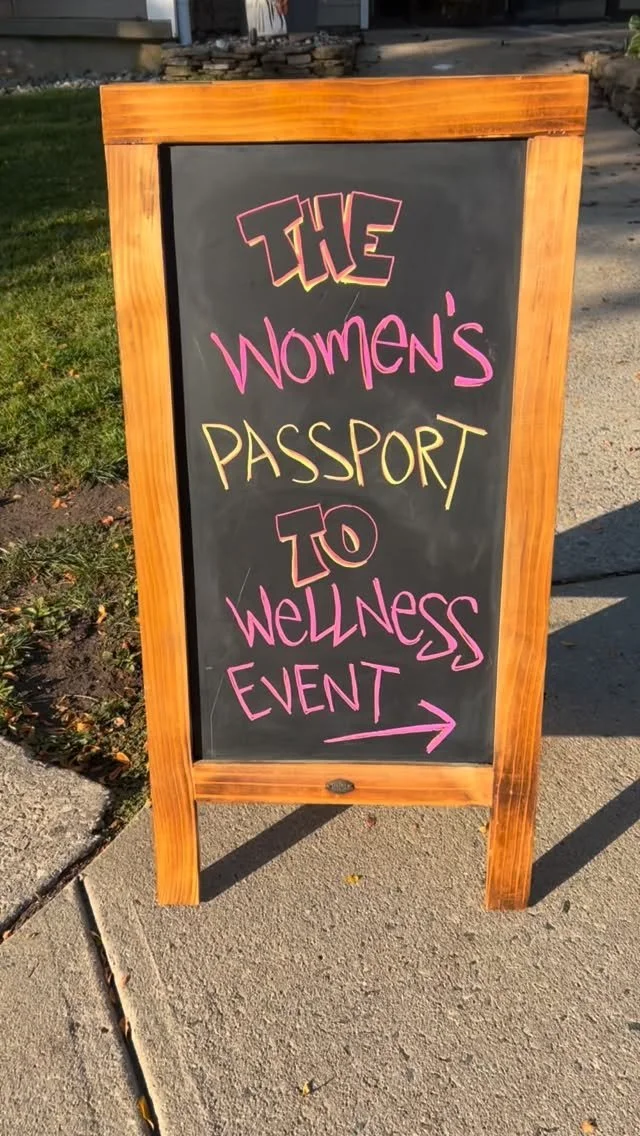 THE
WOMEN'S
PASSPORT
TO
WELLNESS
EVENT